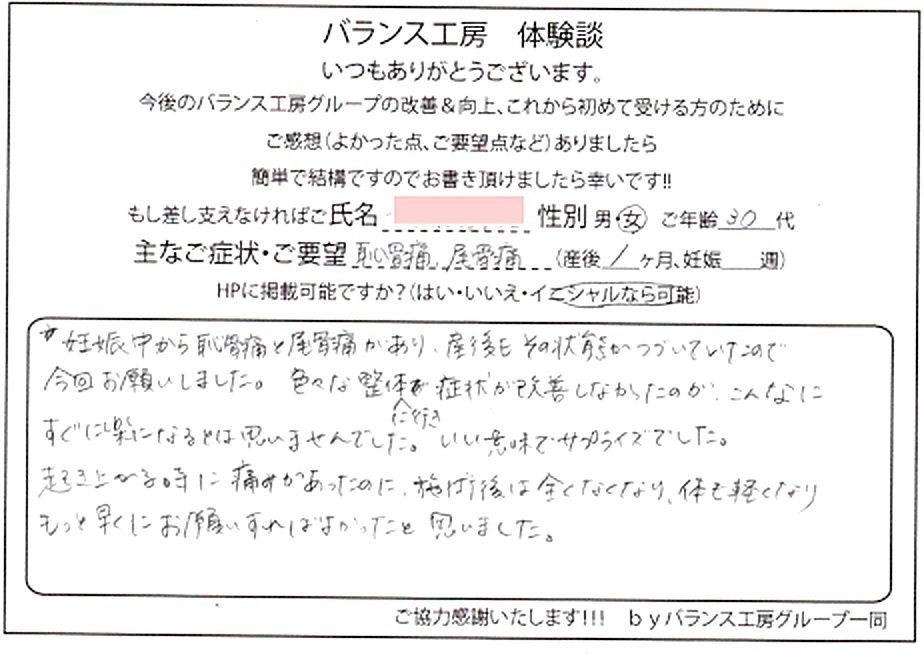 バランス工房　体験談
いつもありがとうございます。
今後のバランス工房グループの改善＆向上、これから初めて受ける方のために
ご感想（よかった点、ご要望点など）ありましたら
簡単で結構ですのでお書き頂けましたら幸いです!!
もし差し支えなければご氏名 性別 男・女 ご年齢 30 代
主なご症状・ご要望 恥骨痛、尾骨痛 （産後 1 ヶ月、妊娠 週）
HPに掲載可能ですか？（はい・いいえ・イニシャルなら可能）
妊娠中から恥骨痛と尾骨痛があり、産後もその状態がつづいていたので
今回お願いしました。色々な整体に行き症状が改善しなかったのが、こんなに
すぐに楽になるとは思いませんでした。いい意味でサプライズでした。
起き上がる時に痛みがあったのに、施術後は全くなくなり、体も軽くなり
もっと早くにお願いすればよかったと思いました。
ご協力感謝いたします!!!　byバランス工房グループ一同